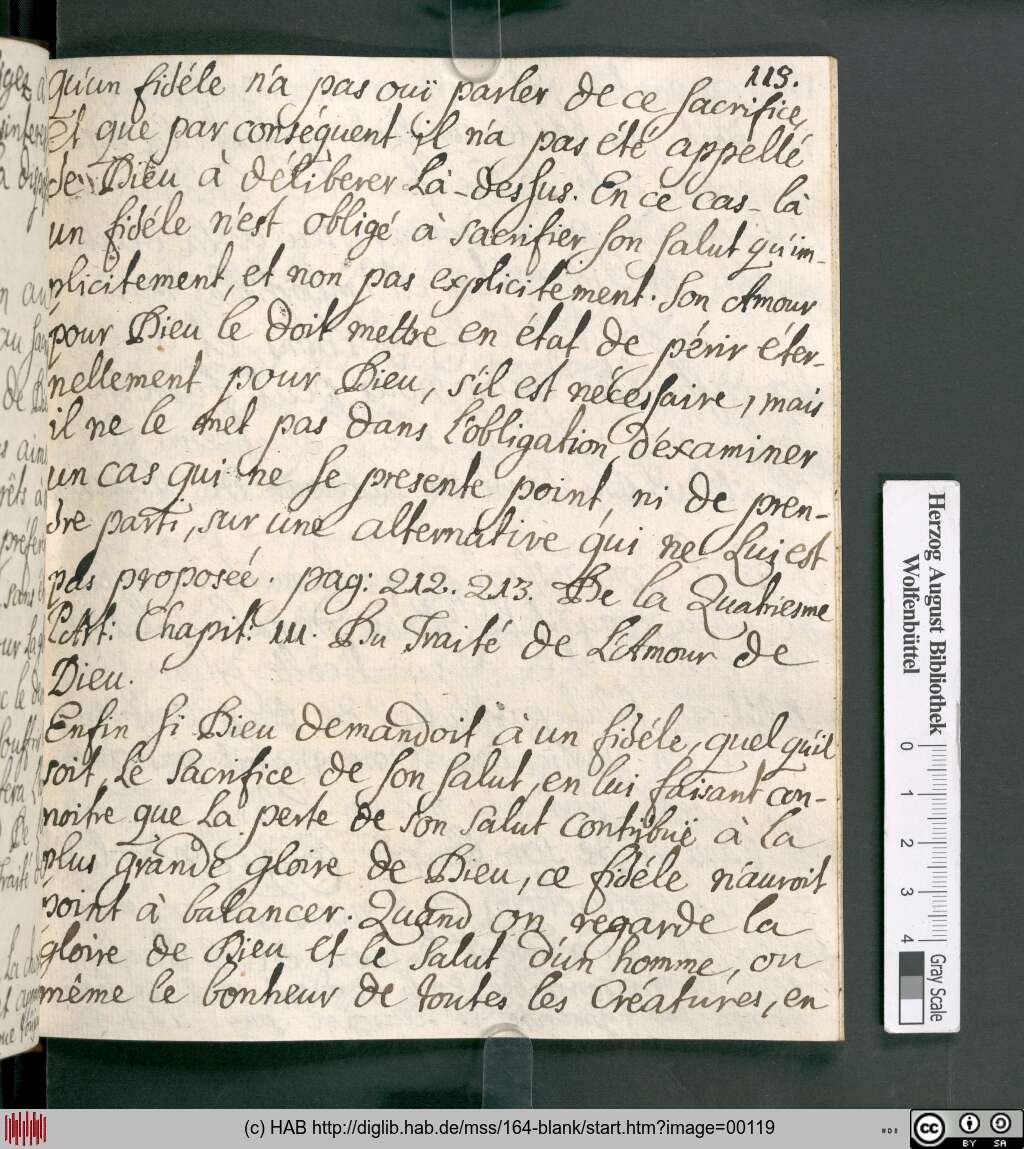 113.
qu'un fidéle n'a pas ouï parler de ce sacrifice,
Et que par conséquent il n'a pas été appellé
de Dieu à déliberer Là-dessus. En ce cas-là
un fidéle n'est obligé à sacrifier son salut qu'im-
plicitement, et non pas explicitement. Son Amour
pour Dieu le doit mettre en état de périr éter-
nellement pour Dieu, s'il est nécessaire, mais
il ne le met pas dans L'obligation d'éxaminer
un cas qui ne se presente point, ni de pren-
dre parti, sur une alternative qui ne Lui est
pas proposeé. pag: 212. 213. De la Quatriesme
Part: Chapit: III. Du Traité de L'Amour de
Dieu.
Enfin si Dieu demandoit à un fidéle, quel qu'il
soit, Le Sacrifice de son salut, en lui faisant con-
noitre que La perte de son salut contribuë à la
plus grande gloire de Dieu, ce fidéle n'auroit
point à balancer. Quand on regarde la
gloire de Dieu Et le Salut d'un homme, ou
même le bonheur de toutes les Créatures, en
Herzog August Bibliothek
Wolfenbüttel
0 1 2 3 4
Gray Scale
(c) HAB http://diglib.hab.de/mss/164-blank/start.htm?image=00119
cc BY SA